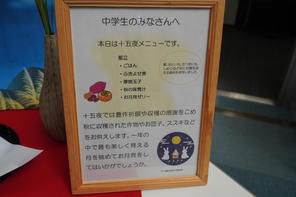 中学生のみなさんへ
本日は十五夜メニューです。
献立
・ごはん
・ふきよせ煮
・秋の味覚汁
・お月見ゼリー
十五夜では豊作祈願や収穫の感謝をこめ
秋に収穫された作物やお団子、ススキなど
をお供えします。一年の
中で最も美しく見える
月を眺めてお月見をして
はいかがでしょうか。